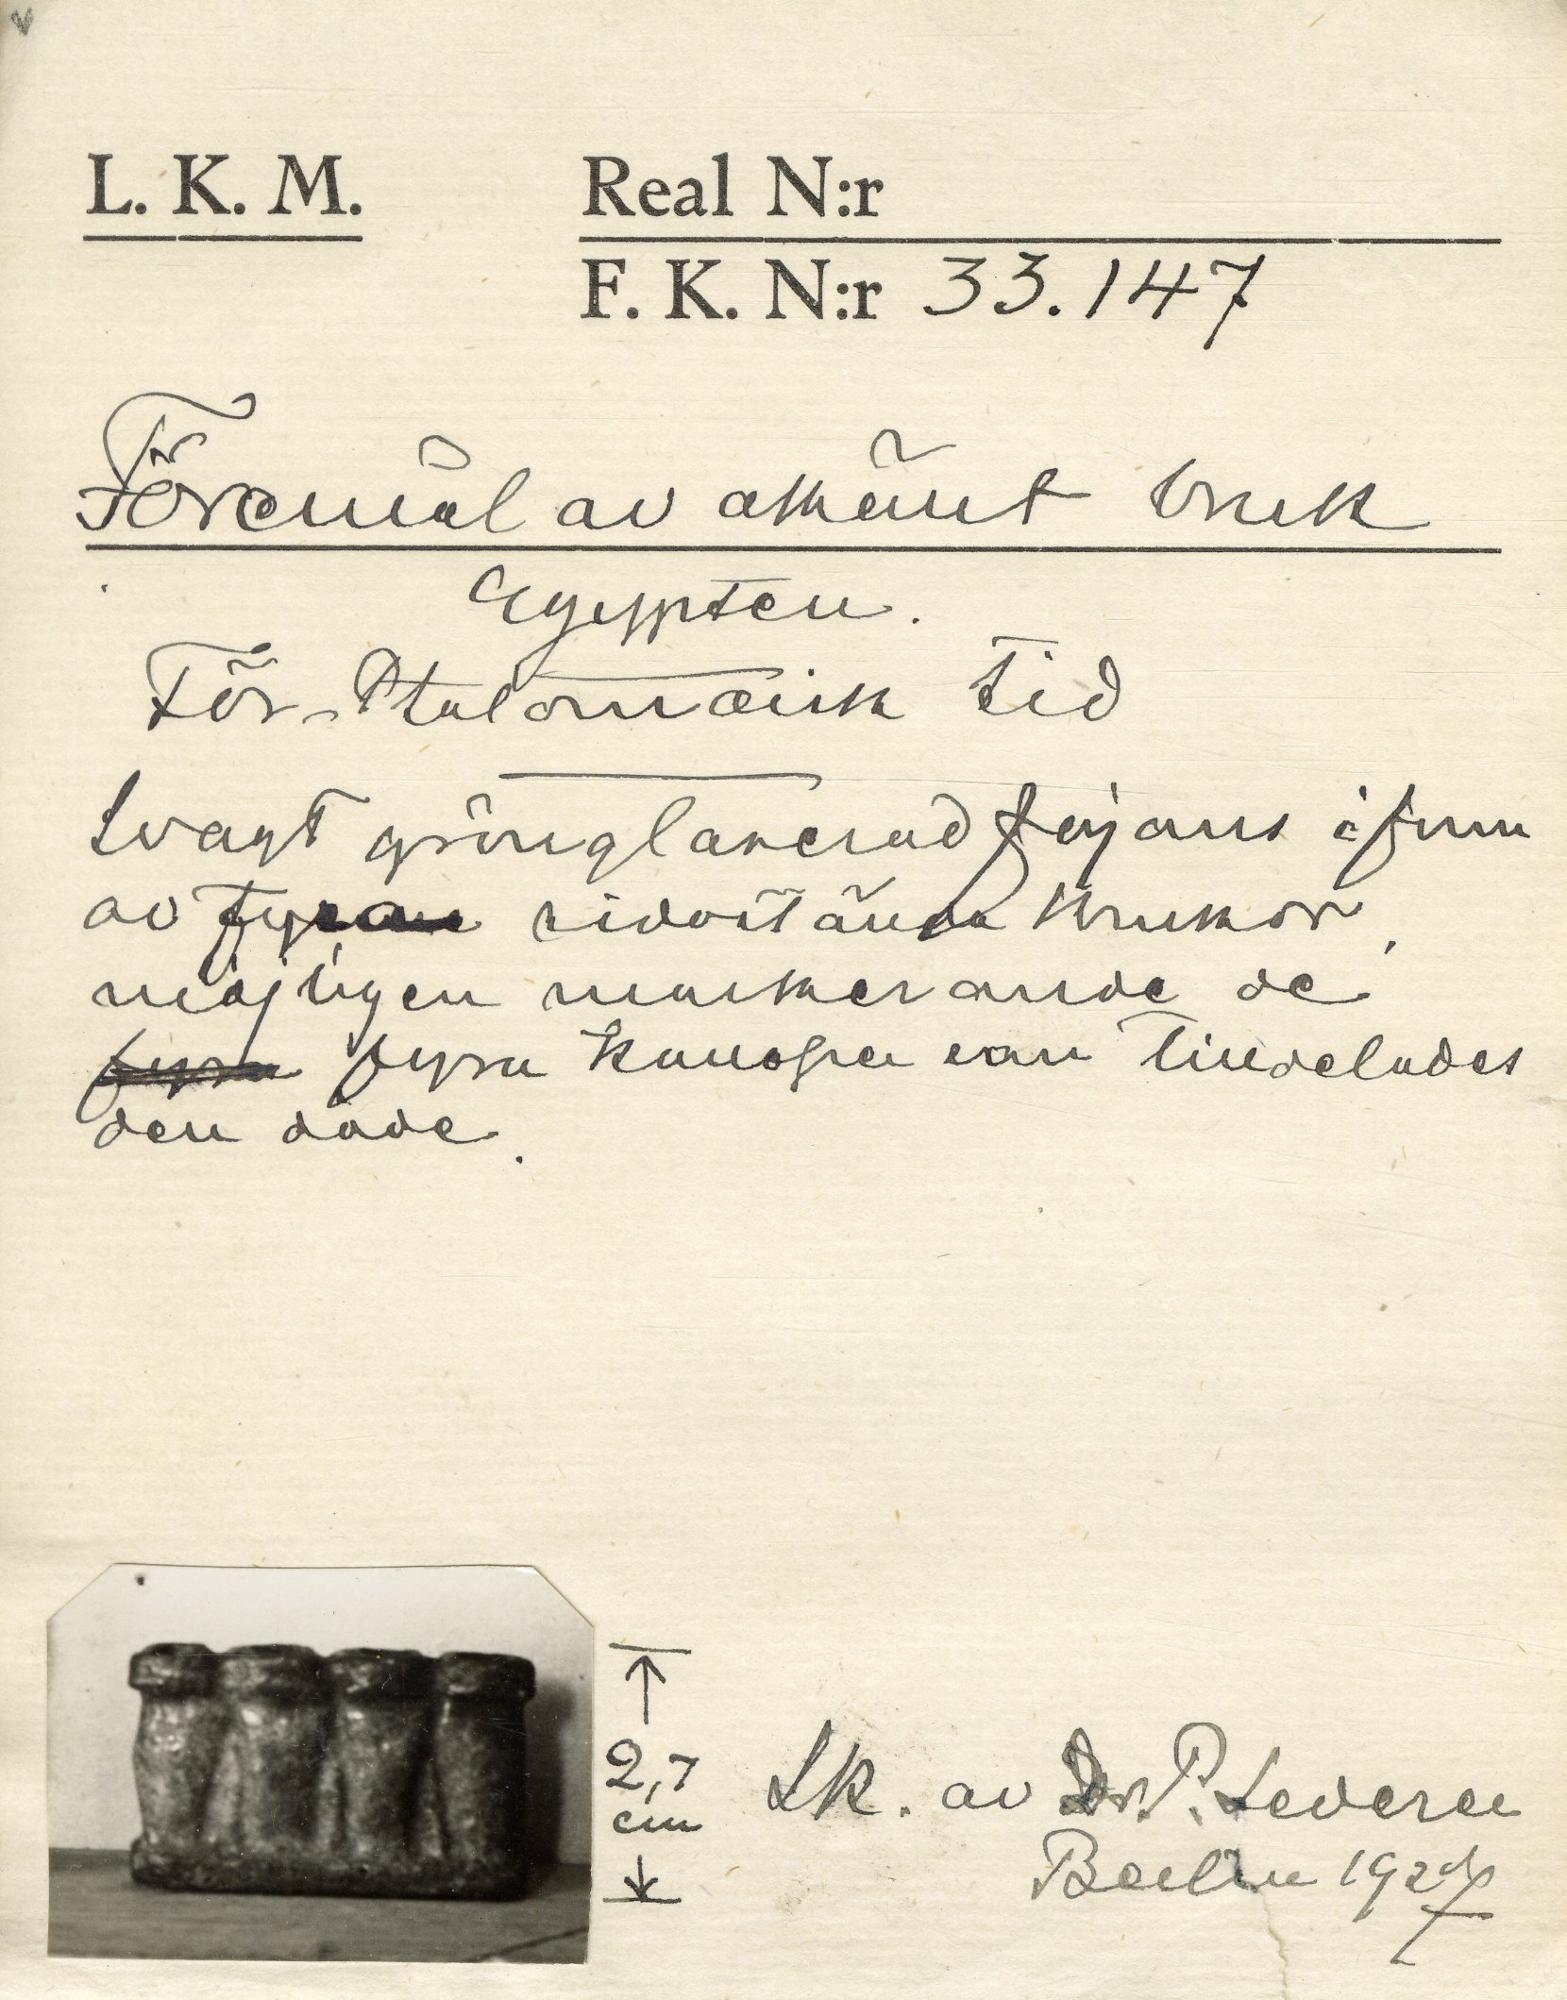 L. K. M.
Real N:r
F. K. N:r 33.147
Föremål av allmänt bruk
Egypten.
För-Ptolomæisk tid
Svagt grönglaserad fajans i form
av fyra sidoställda krukor,
möjligen markerande de
fyra fyra kanoper som tilldelades
den döde.
2,7
cm
Sk. av Dr. P. Lederer
Berlin 192